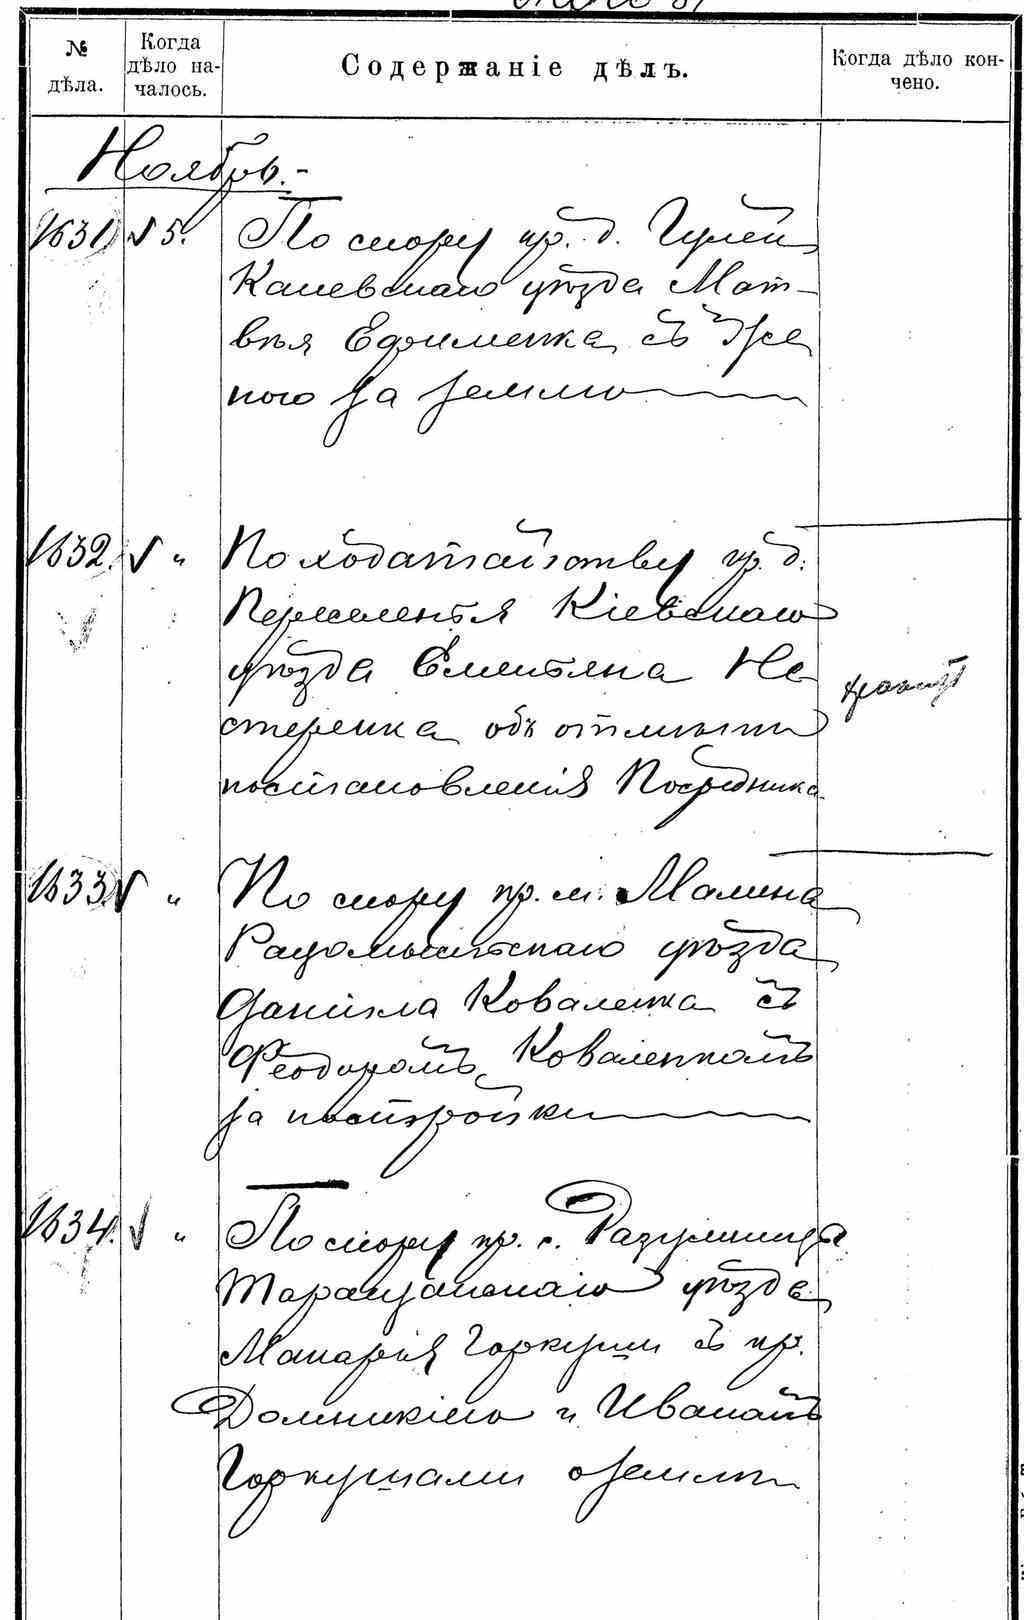 № дѣла.
Когда дѣло на-
чалось.
Содержаніе дѣлъ.
Когда дѣло кон-
чено.
Ноябрь.-
1631 5.
По спору кр. д. Гулей
Каневскаго уѣзда Мат-
вѣя Ефименка съ Же
ною за землю
1632. "
По ходатайству кр. д.
Переселенья Кіевскаго
уѣзда Емельяна Не
стеренка объ отмѣнѣ
постановленія Посредника
1633 "
По спору кр. м. Малина
Радомысльскаго уѣзда
Даніила Коваленка съ
Феодоромъ Коваленкомъ
за постройки
1634. "
По спору кр. с. Разумницы
Таращанскаго уѣзда
Макарія Горкуши съ кр.
Домникіею и Иваномъ
Горкушами о землѣ